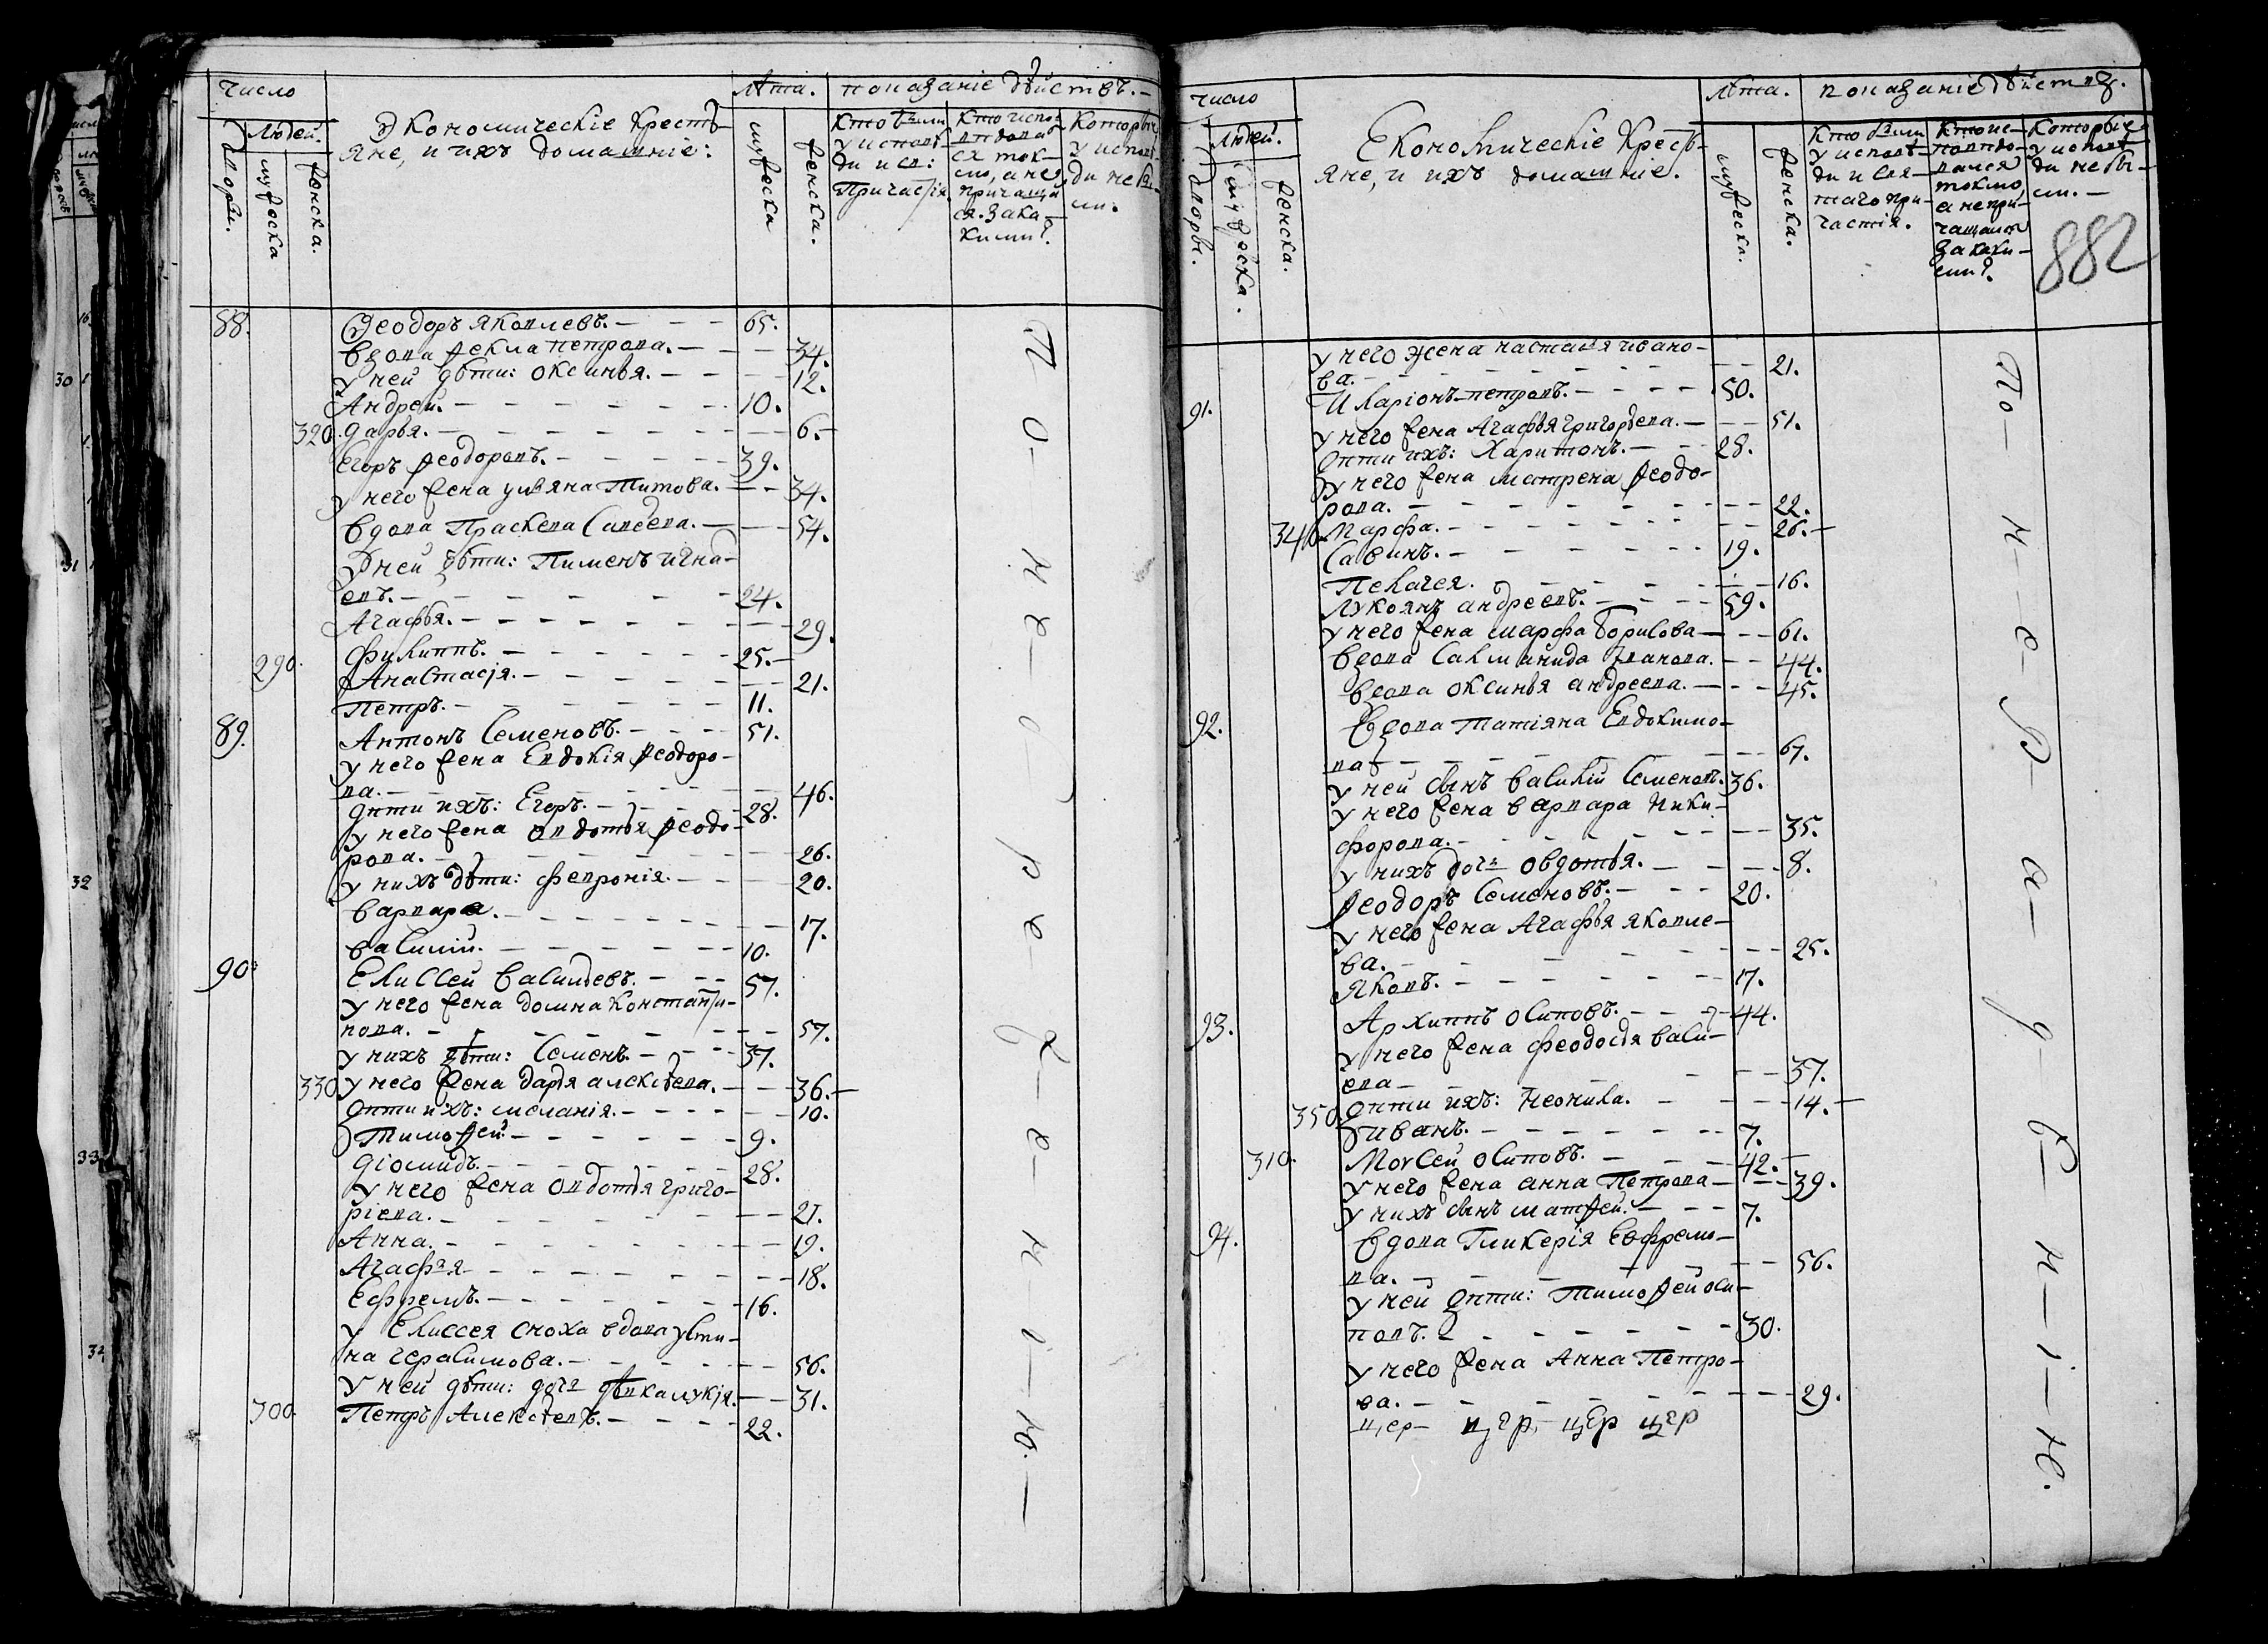 Число
Людей.
Дворы.
мужеска
женска.
Экономическіе Кресть-
яне, и ихъ домашніе:
Лѣта.
мужеска
женска.
показаніе дѣйствъ.
Кто были
у исповѣ-
ди и св:
Причастія.
Кто испо-
вѣдова
ся ток-
мо, а не
причаща
ся. За ка-
кими?
Которые
у исповѣ-
ди не бы-
ли.
88. Ѳеодоръ яковлевъ. 65.
вдова ѳекла петрова. 34.
у ней дѣти: оксинья. 12.
Андрей. 10.
320. дарья. 6.
Егоръ ѳеодоровъ. 39.
у него жена ульяна Титова. 34.
вдова Праскева Савоева. 54.
У ней дѣти: Пименъ игна-
евъ. 24.
Агафья. 29.
290. филиппъ. 25.
Анастасія. 21.
Петръ. 11.
89. Антонъ Семеновъ. 51.
у него жена Евдокія ѳеодоро-
ва. 46.
дѣти ихъ: Егоръ. 28.
у него жена овдотья ѳеодо-
рова. 26.
у нихъ дѣти: февронія. 20.
варвара. 17.
василій. 10.
90. Елиссей васильевъ. 57.
у него жена домна константи-
нова. 57.
у нихъ дѣти: Семенъ. 37.
330. у него жена дарья алексѣева. 36.
дѣти ихъ: меланія. 10.
Тимоѳей. 9.
діомидъ. 28.
у него жена овдотья григо-
ріева. 21.
Анна. 19.
Агафья 18.
Ефремъ. 16.
у Елиссея сноха вдова усти-
на герасимова. 56.
У ней дѣти: дочь дѣвка лукія. 31.
300. Петръ Алексѣевъ. 22.
По-не-о-ре-
че-н-і-ю.
882
число
Людей.
Дворы.
мужеска.
женска.
Економическіе Кресть-
яне, и ихъ домашніе.
Лѣта.
мужеска.
женска.
показаніе дѣйствъ.
Кто были
у исповѣ-
ди и свя-
таго при-
частія.
Кто ис-
повѣдо-
вался
токмо,
а непри-
чащался
За каки-
ми?
Которые
у исповѣ
ди не бы-
ли.
у него жена настасья ивано-
ва. 21.
91. Иларіонъ петровъ. 50.
у него жена Агафья григорьева. 51.
дѣти ихъ: Харитонъ. 28.
у него жена матрена ѳеодо-
рова. 22.
340. Марфа. 26.
Савинъ. 19.
Пелагея. 16.
Лукоянъ андреевъ. 59.
у него жена марфа борисова 61.
вдова Салманида Иванова. 44.
вдова оксинья андреева. 45.
92. вдова Татіяна Евдокимо-
ва 67.
у ней сынъ василій Семеновъ. 36.
у него жена варвара Ники-
форова. 35.
у нихъ дочь овдотья. 8.
ѳеодоръ Семеновъ. 20.
у него жена Агафья яковле-
ва. 25.
Яковъ. 17.
93. Архиппъ осиповъ. 44.
у него жена феодосья васи-
ева 37.
350. дѣти ихъ: неонила. 14.
иванъ. 7.
310. Моѵсей осиповъ. 42.
у него жена анна Петрова 39.
у нихъ сынъ матѳей. 7.
94. вдова Гликерія Евфремо-
ва. 56.
у ней дѣти: Тимоѳей оси-
повъ. 30.
у него жена Анна Петро-
ва. 29.
цер цгр цер цгр
По-н-е-р-
а-д-ѣ-н-і-ю.